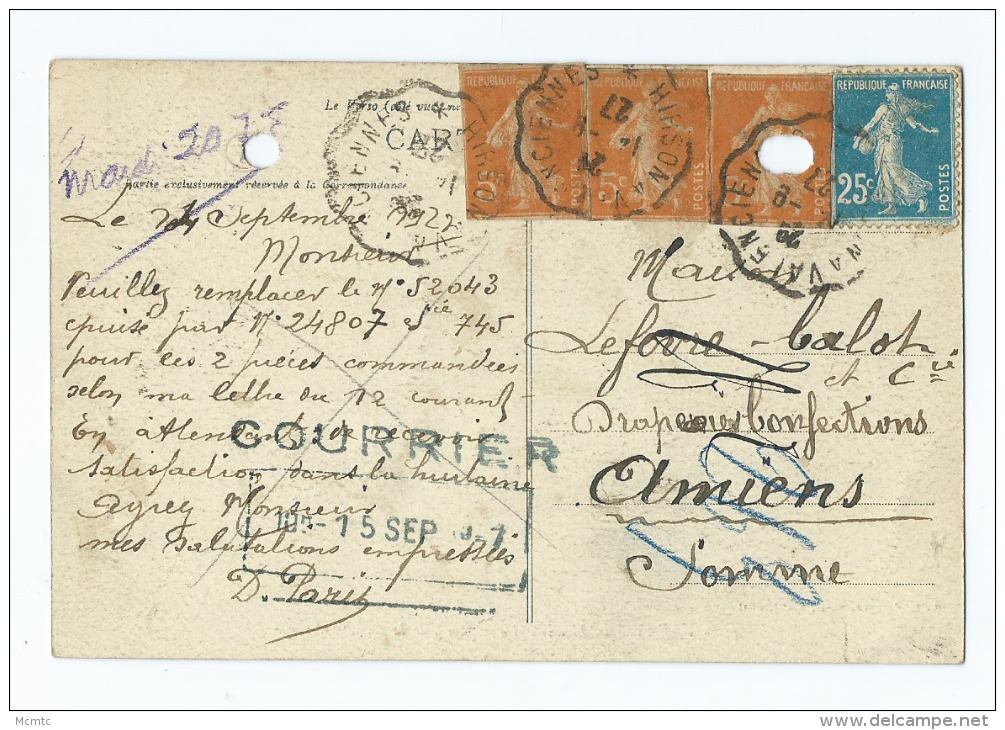 Le Verso (côté vue)
CART
Partie exclusivement réservée à la Correspondance
Mardi 20
REPUBLIQUE FRANÇAISE
POSTES
5c
REPUBLIQUE FRANÇAISE
POSTES
REPUBLIQUE FRANÇAISE
POSTES
REPUBLIQUE FRANÇAISE
25c
POSTES
HIRSON A VALENCIENNES
Le 14 Septembre 1927
Monsieur
Veuillez remplacer le N° 52043
épuisé par N° 24807 et 745
pour les 2 pièces commandées
selon ma lettre du 12 courant
En attendant de recevoir
satisfaction dans la huitaine
Agréez Monsieur
mes salutations empressées
D. Paris
COURRIER
15 SEP
Maison
Lefèvre-Calot
et Cie
Draperies Confections
Amiens
Somme
Mcmtc
www.delcampe.net